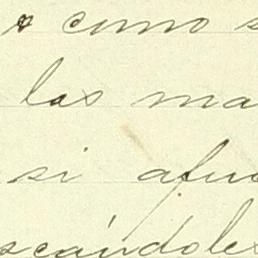 como s
las ma
si afue
scándoles